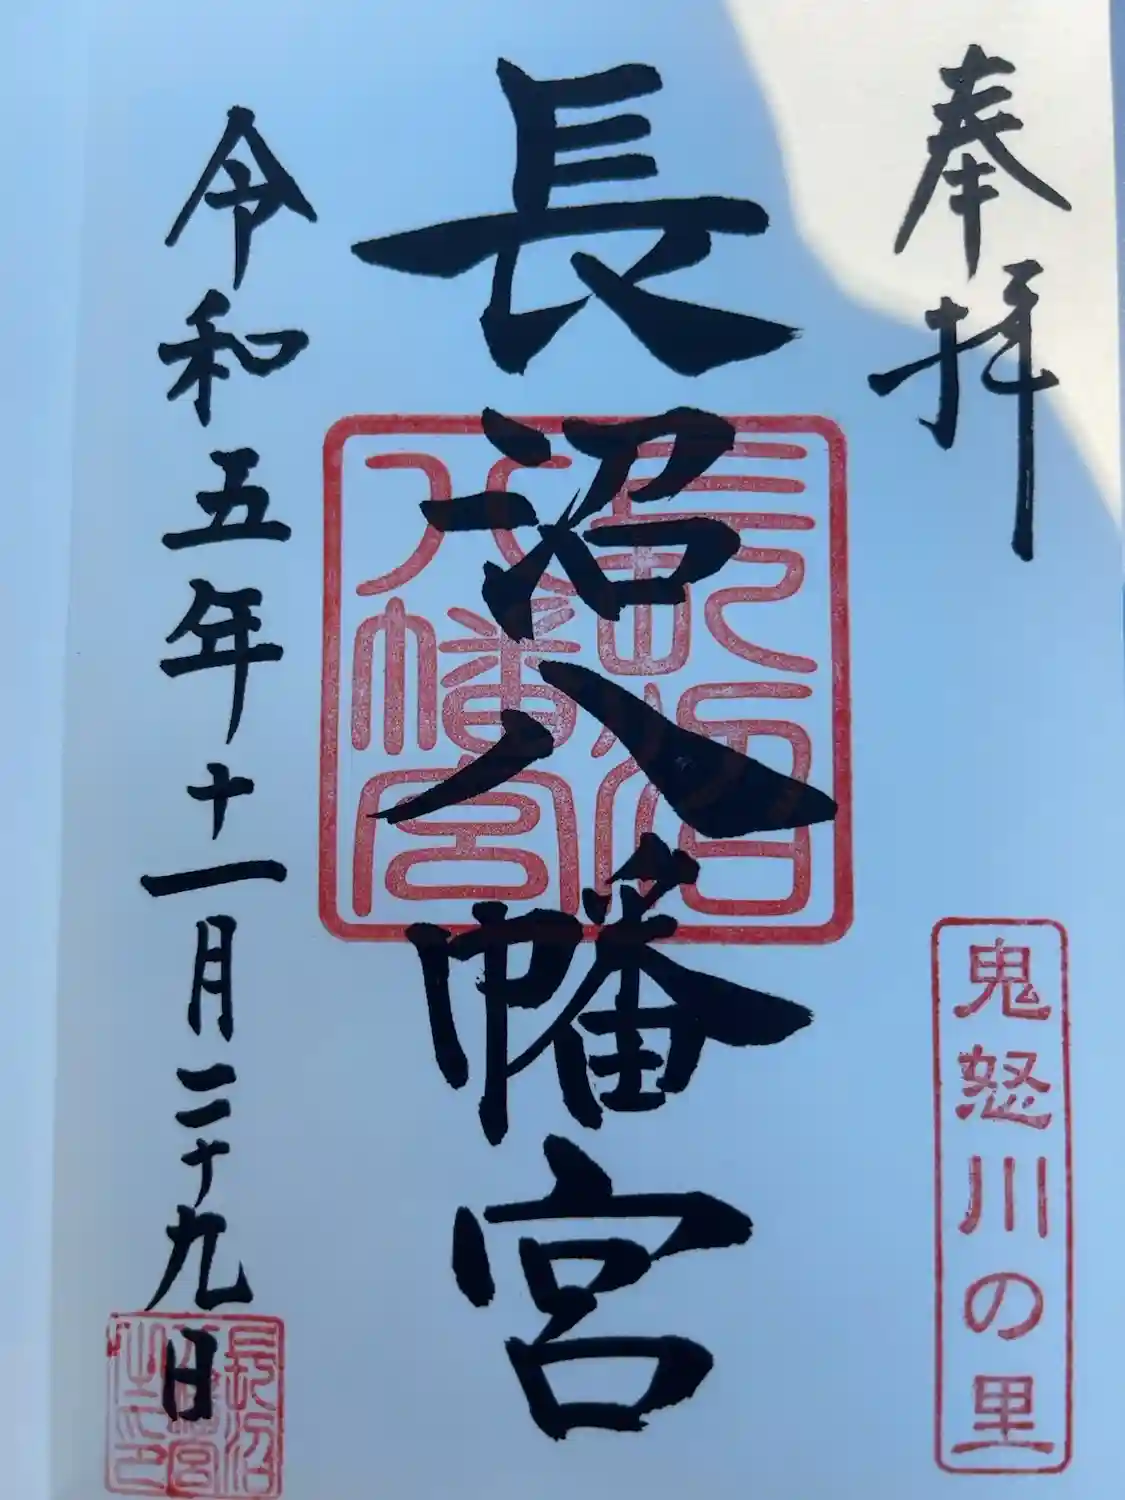 奉拝
鬼怒川の里
長沼八幡宮
長沼八幡宮
令和五年十一月二十九日
長沼八幡宮之印